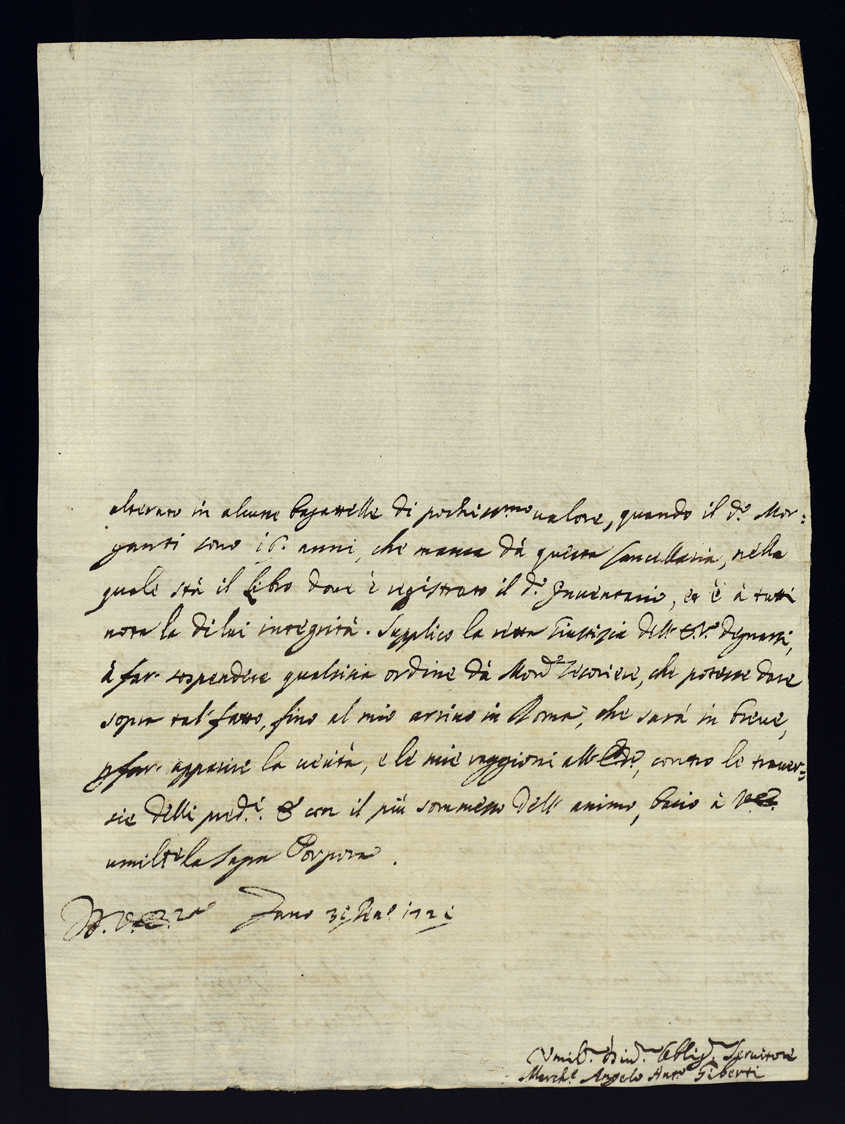 alterato in alcune bagattelle di pochissimo valore, quando il d.º Mor=
ganti sono 16. anni, che manca dà questa Cancellaria, nella
quale stà il Libro dove è registrato il d.º Inventario, et è à tutti
nota la di lui integrità. Supplico la retta Giustizia dell'
à far sospendere qualsisia ordine dà Mons.r Tesoriere, che potesse dare
sopra tal fatto, fino al mio arrivo in Roma, che sarà in breve,
far apparire la verità, e le mie raggioni contro le traver=
sie delli pred.i & con il più sommesso dell' animo, bacio à
umilte la Sagra Porpora.
Fano 31
Umil.mo Obblig.mo Servitore
March.e Angelo Ant.o Giberti